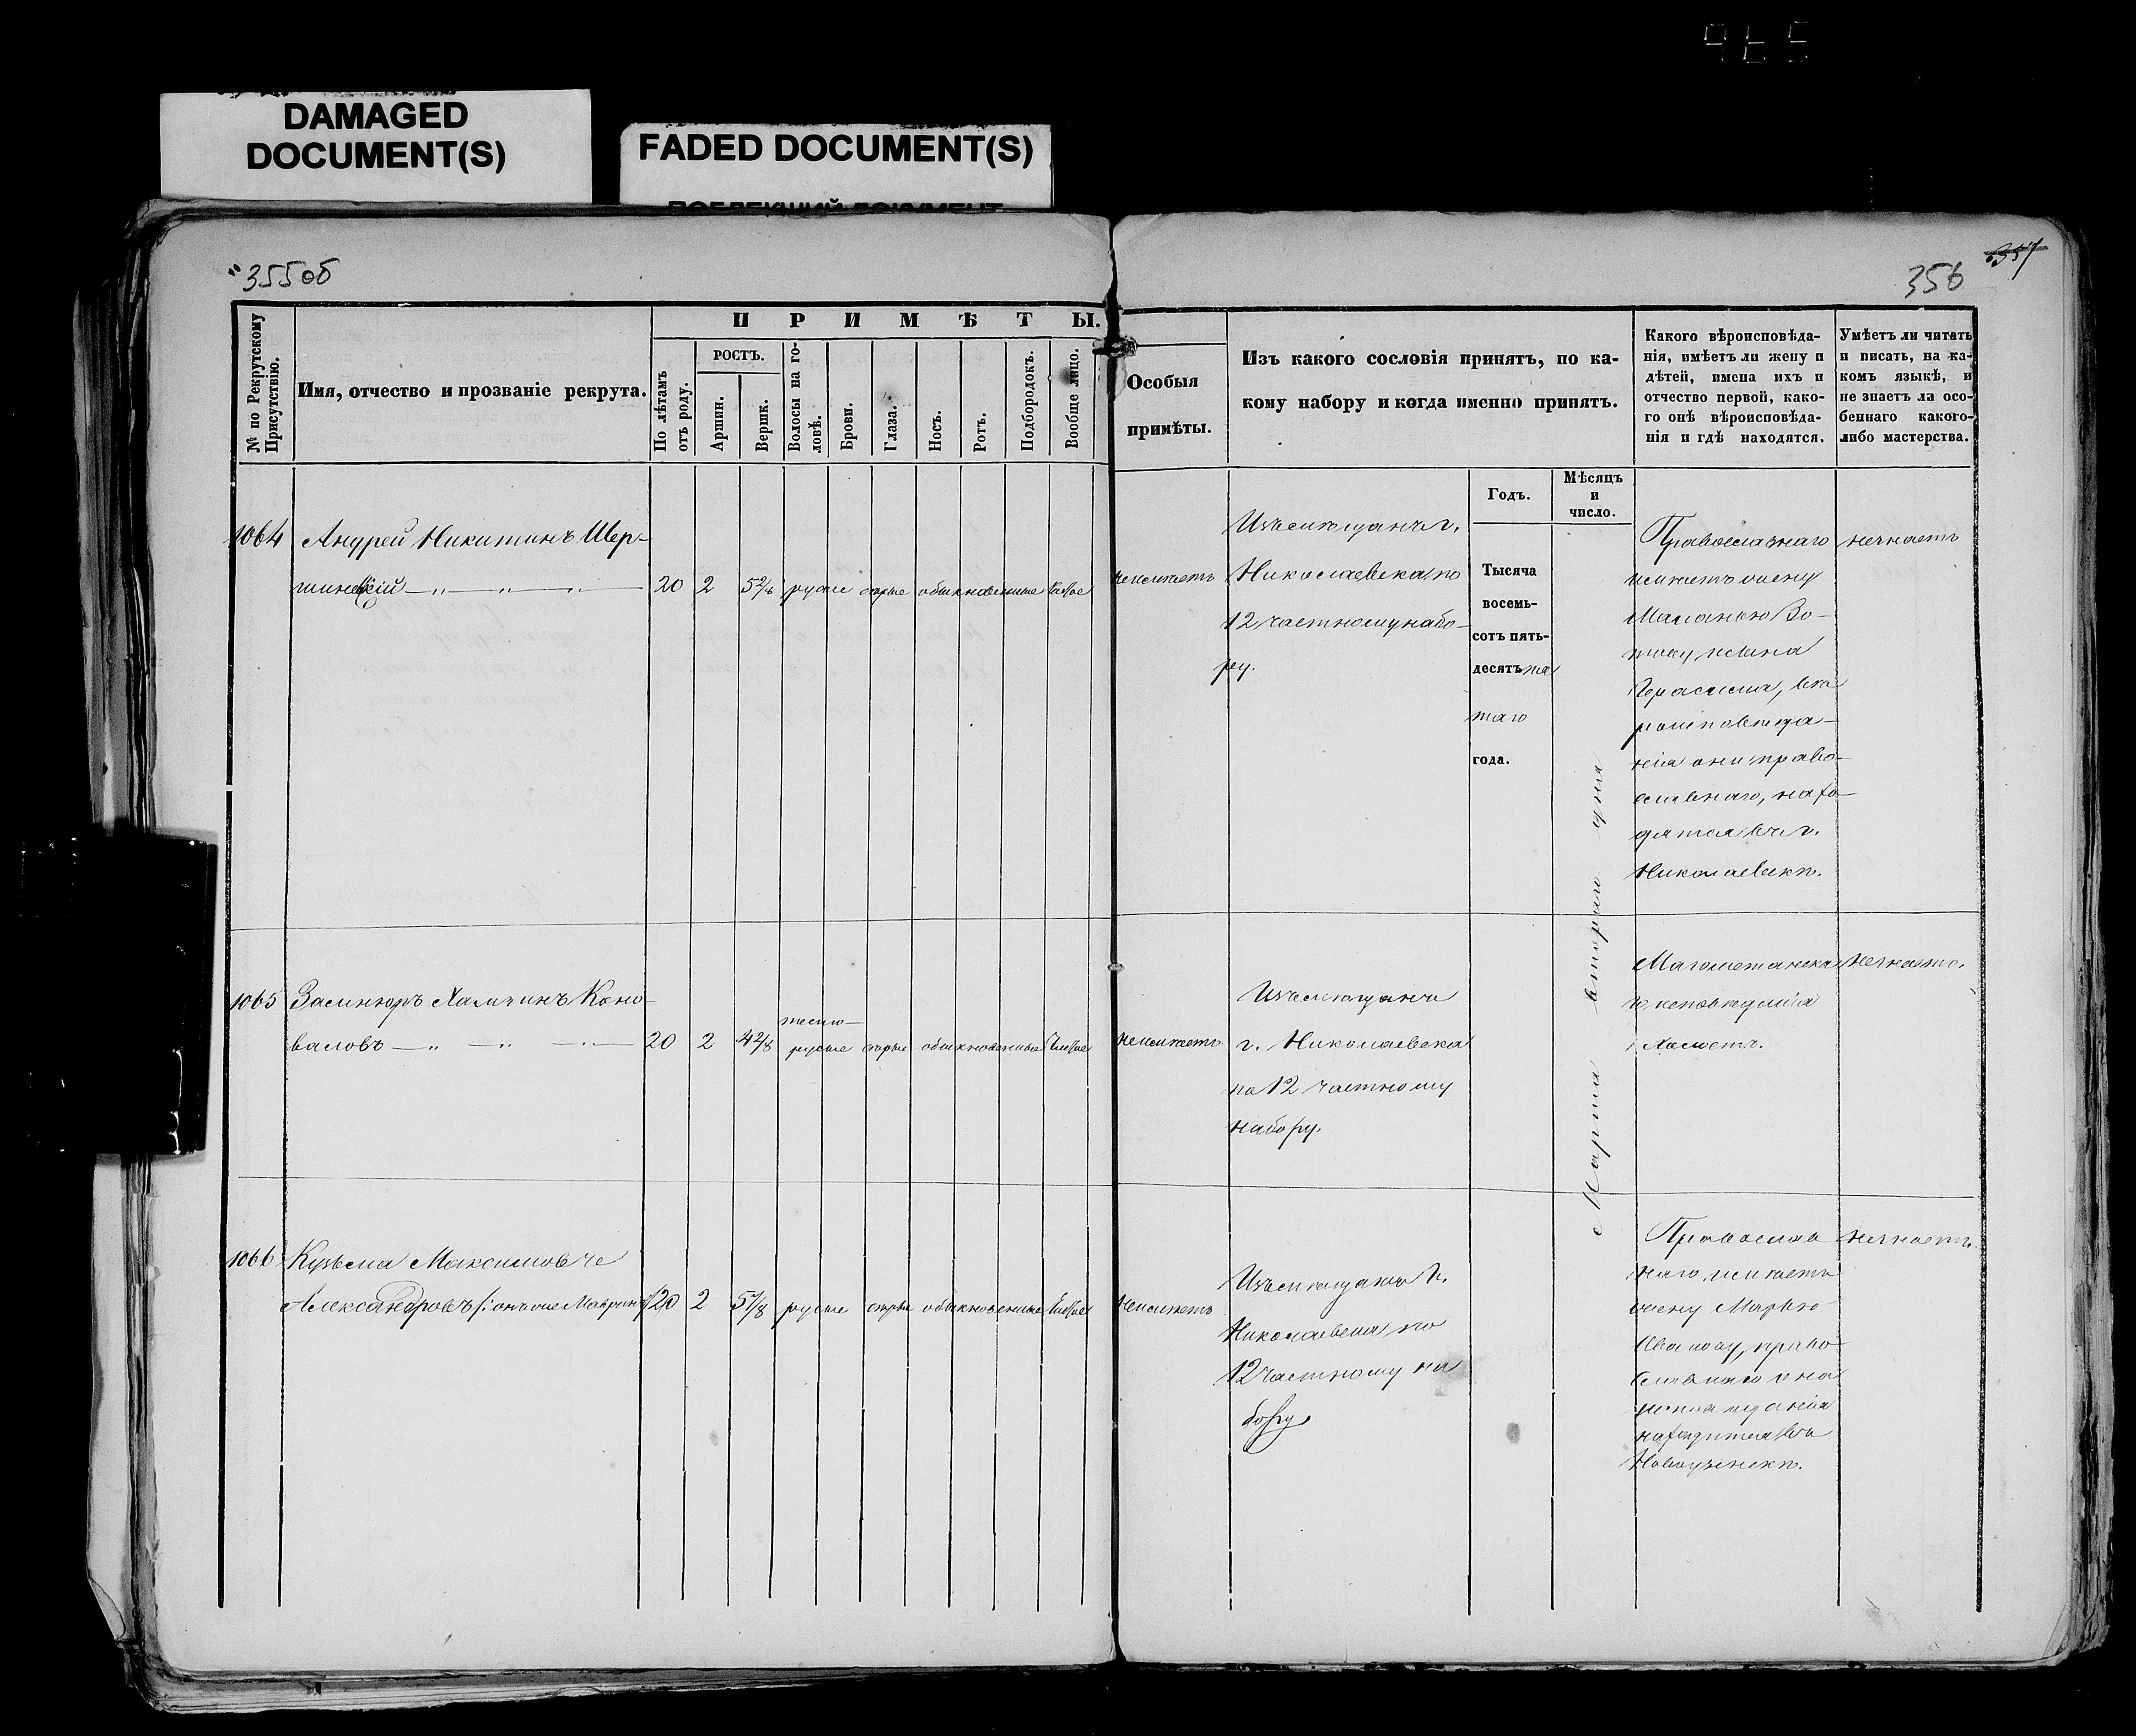 965
DAMAGED
DOCUMENT(S)
FADED DOCUMENT(S)
355об
356
357
№ по Рекрутскому Присутствію.
Имя, отчество и прозваніе рекрута.
ПРИМѢТЫ.
По лѣтамъ отъ роду.
РОСТЪ.
Аршин.
Вершк.
Волосы на головѣ.
Брови.
Глаза.
Носъ.
Ротъ.
Подбородокъ.
Вообще лицо.
Особыя
примѣты.
Изъ какого сословія принятъ, по ка-
кому набору и когда именно принятъ.
Какого вѣроисповѣда-
нія, имѣетъ ли жену и
дѣтей, имена ихъ и
отчество первой, како-
го онѣ вѣроисповѣда-
нія и гдѣ находятся.
Умѣетъ ли читать
и писать, на ка-
комъ языкѣ, и
не знаетъ ли осо-
беннаго какого-
либо мастерства.
Годъ.
Мѣсяцъ
и
число.
1064 Андрей Никитинъ Шер-
шинскій 20 2 5 2/8 русые сѣрые обыкновенные чистое
неимѣетъ
Изъ мѣщанъ г.
Николаевска по
12 частному набо-
ру.
Тысяча
восемь-
сотъ пять-
десятъ пя
таго
года.
Марта втораго дня
Православнаго
имѣетъ жену
Маланью
Герасима,
роисповѣда-
нія они право-
славнаго, нахо-
дятся въ г.
Николаевскѣ.
незнаетъ
1065 Коно-
валовъ 20 2 4 2/8 темно-
русые сѣрые обыкновенные чистое
неимѣетъ
Изъ мѣщанъ
г. Николаевска
по 12 частному
набору.
Магометанска
го исповѣданія
Холостъ.
незнаетъ.
1066 Кузьма Максимовъ
Александровъ /: онъ же Мавринъ :/ 20 2 5/8 русые сѣрые обыкновенные чистое
неимѣетъ
Изъ мѣщанъ г.
Николаевска по
12 частному на
бору.
Православ
наго, имѣетъ
жену Марью
Иванову, право-
славнаго она
находится въ
Новоузенскѣ.
незнаетъ.